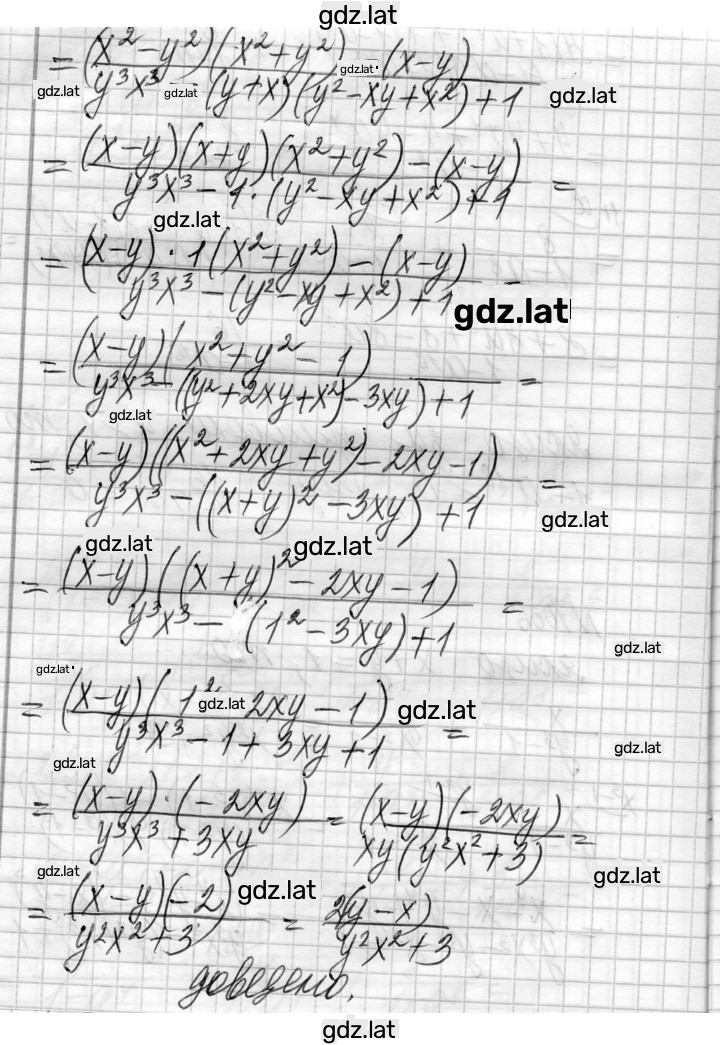 gdz.lat
= ((x² – y²)(x² + y²) – (x – y)) / (y³x³ – (y + x)(y² – xy + x²) + 1)
gdz.lat gdz.lat gdz.lat gdz.lat
= ((x – y)(x + y)(x² + y²) – (x – y)) / (y³x³ – 1·(y² – xy + x²) + 1) =
gdz.lat
= ((x – y)·1(x² + y²) – (x – y)) / (y³x³ – (y² – xy + x²) + 1) =
gdz.lat
= ((x – y)(x² + y² – 1)) / (y³x³ – ((y² + 2xy + x²) – 3xy) + 1) =
gdz.lat
= ((x – y)((x² + 2xy + y²) – 2xy – 1)) / (y³x³ – ((x + y)² – 3xy) + 1) =
gdz.lat
gdz.lat gdz.lat
= ((x – y)((x + y)² – 2xy – 1)) / (y³x³ – (1² – 3xy) + 1) =
gdz.lat
gdz.lat
= ((x – y)(1² – 2xy – 1)) / (y³x³ – 1 + 3xy + 1) =
gdz.lat gdz.lat
gdz.lat
gdz.lat
= ((x – y)·(– 2xy)) / (y³x³ + 3xy) = ((x – y)(– 2xy)) / (xy(y²x² + 3)) =
gdz.lat gdz.lat
= ((x – y)(– 2)) / (y²x² + 3) = (2(y – x)) / (y²x² + 3)
gdz.lat
доведено.
gdz.lat